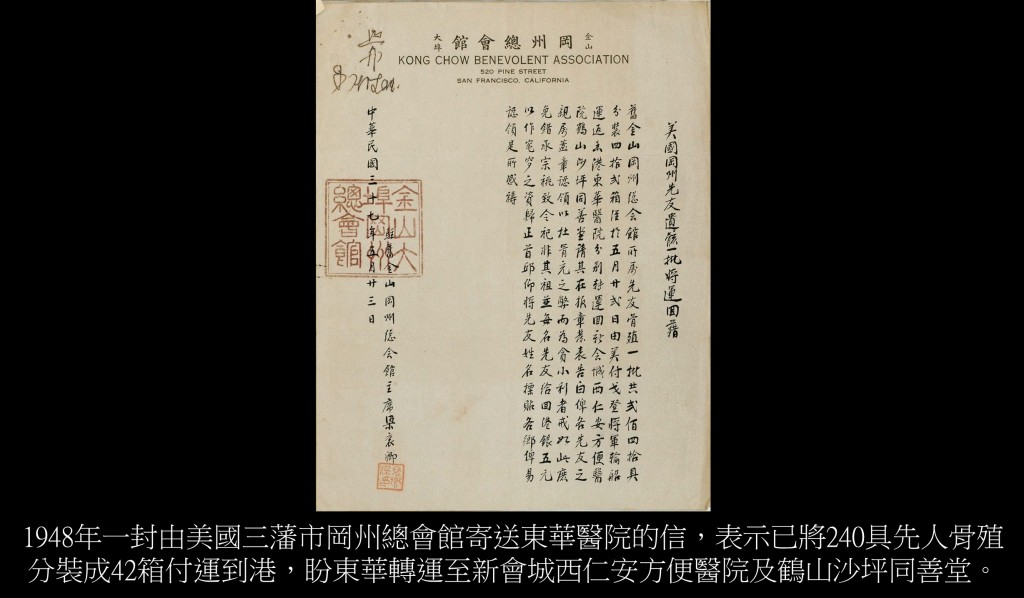 金山
岡州總會館
大埠
KONG CHOW BENEVOLENT ASSOCIATION
520 PINE STREET
SAN FRANCISCO, CALIFORNIA
美國岡州先友遺骸一批將運回籍
舊金山岡州総会館所属先友骨殖一批共弍佰四拾具
分裝四拾弍箱経於五月廿弍日由美付戈登將軍輪船
運返香港東華醫院分別轉運囬新会城西仁安方便醫
院鶴山沙坪同善堂請其在報章表告白俾各先友之
親房蓋章認領以杜冒充之弊而為貪小利者戒如此庶
免錯承宗祧致令祀非其祖並每名先友給囬港銀五元
以作窀穸之資歸正首邱仰將先友姓名標貼各鄉俾易
認領是所感禱
駐舊金山岡州総会館主席梁衮卿
中華民國三十七年五月廿三日
金山大埠岡州總會館
1948年一封由美國三藩市岡州總會館寄送東華醫院的信，表示已將240具先人骨殖
分裝成42箱付運到港，盼東華轉運至新會城西仁安方便醫院及鶴山沙坪同善堂。